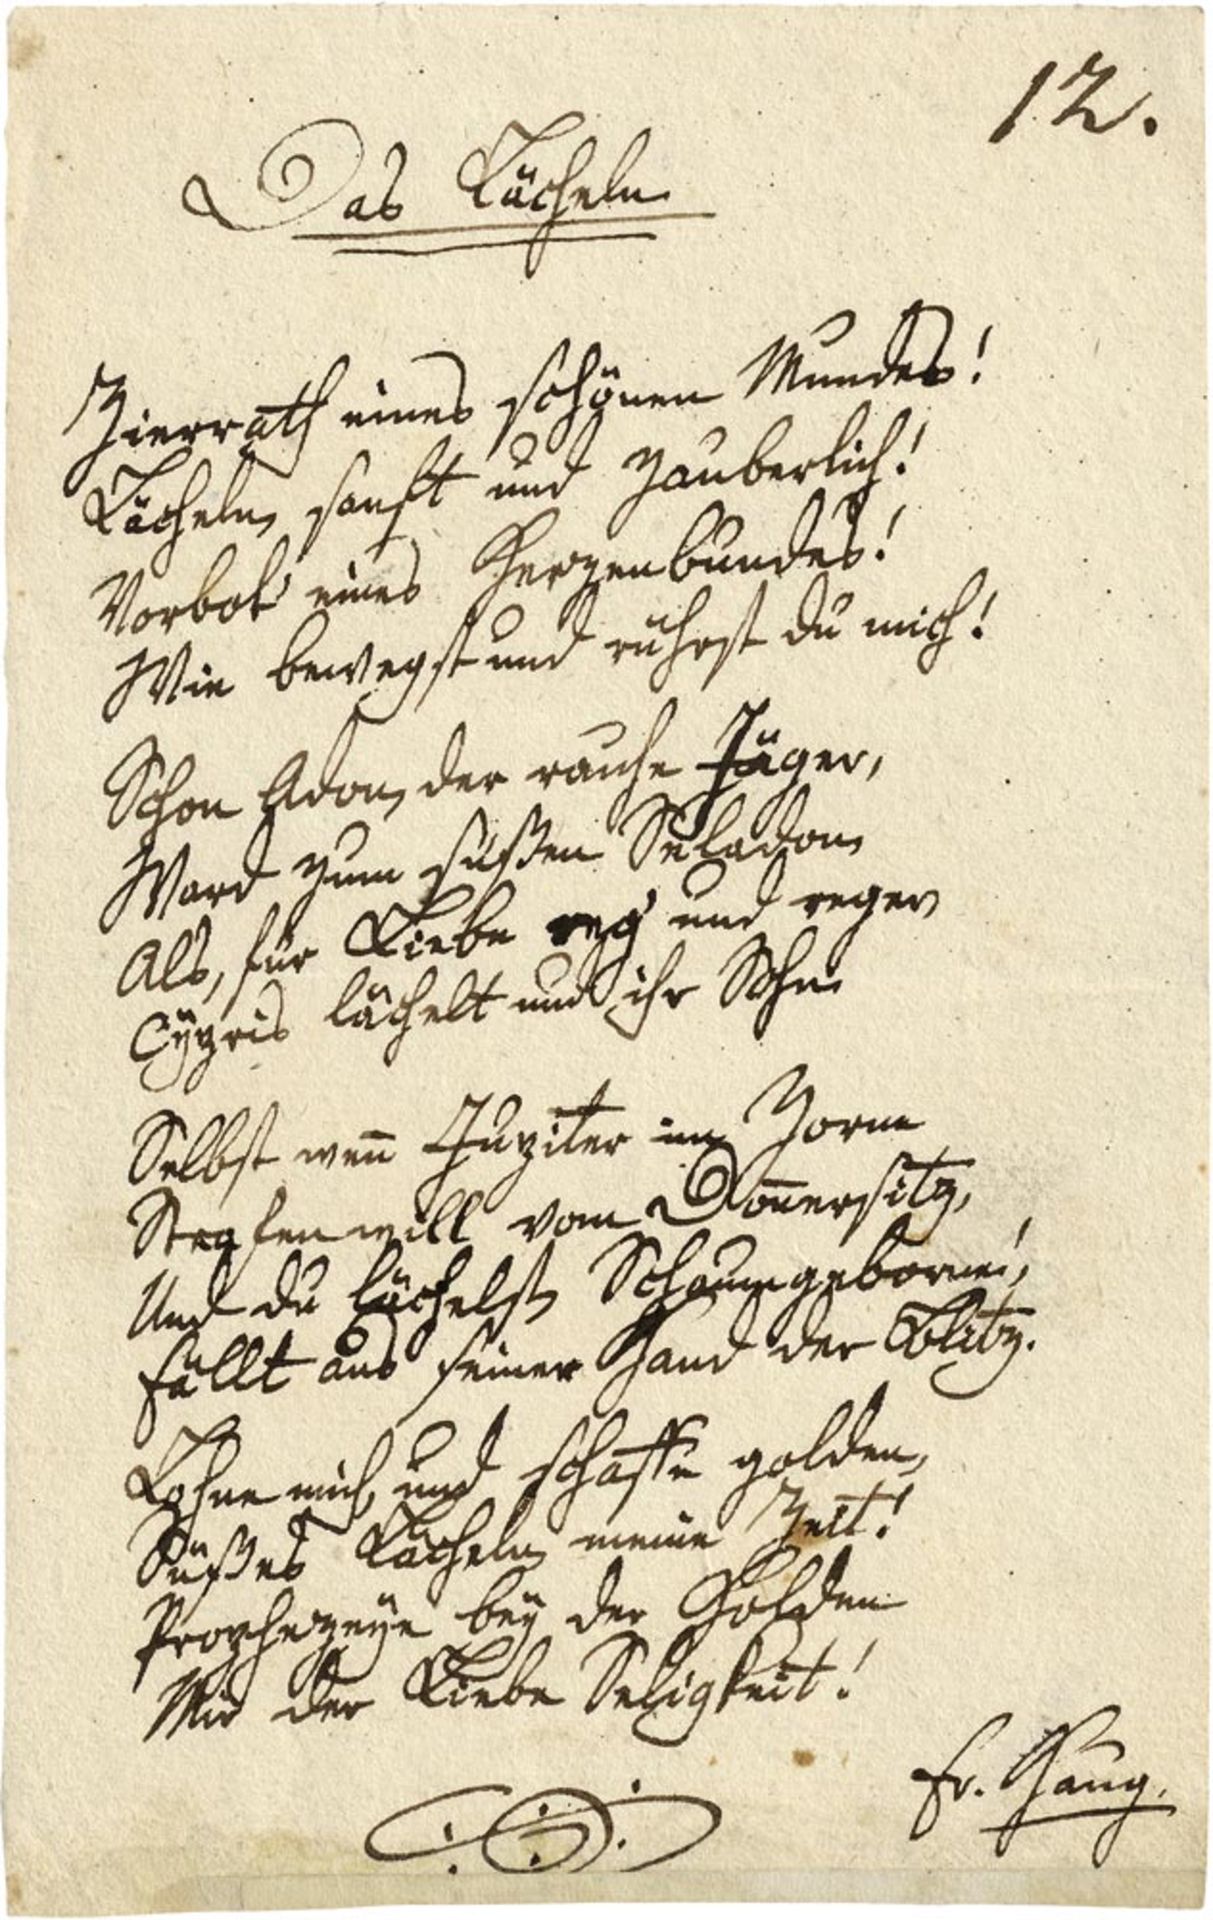 12.
Das Lächeln
Zierrath eines schönen Mundes!
Lächeln, sanft und zauberlich!
Vorbot' eines Herzenbundes!
Wie bewegst und rührst du mich!
Schon Adon, der rauhe Jäger,
Ward zum süßen Seladon,
Als, für Liebe reg' und reger,
Cÿpris lächelt und ihr Sohn.
Selbst wen̄ Jupiter im Zorne
Strafen will vom Don̄ersitz,
Und du lächelst, Schaumgeborne!,
Fällt aus seiner Hand der Blitz.
Lohne mich, und schaffe golden,
Süßes Lächeln, meine Zeit!
Prophezeÿe beÿ der Holden
Mir der Liebe Seligkeit!
Fr. Haug.